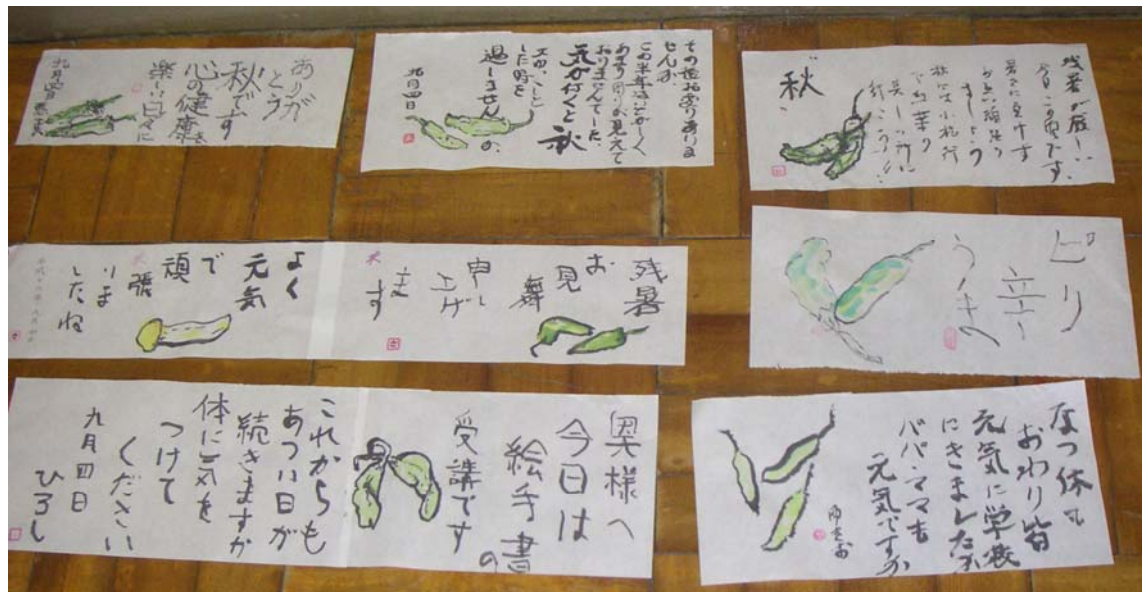 ありが
とう
秋です
心の健康を
楽しい日々に
九月四日
その後お変りありま
せんか
この半年はいそがしく
あまり回りが見えて
おりませんでした
気が付くと秋
した時を
過しませんか
九月四日
残暑が厳しい
今日この頃です
秋
残暑
お
見
舞
申し
上げ
ます
よく
元気
で
頑
張
りま
したね
ピリ
辛
うまい
奥様へ
今日は
絵手書の
受講です
これからも
あつい日が
続きますが
体に気を
つけて
ください
九月四日
ひろし
なつ休も
おわり皆
元気に学校
にきましたか
パパママも
元気ですか